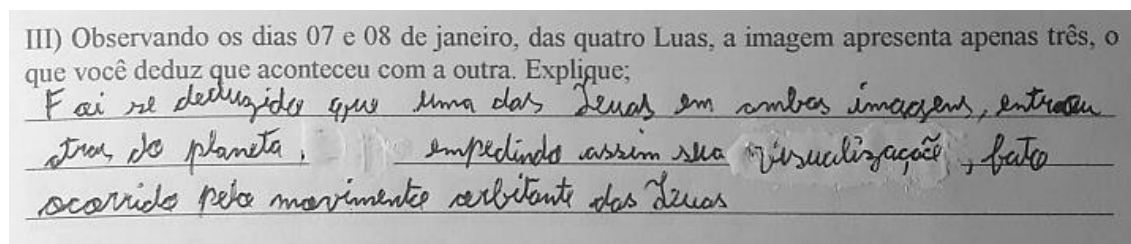 III) Observando os dias 07 e 08 de janeiro, das quatro Luas, a imagem apresenta apenas três, o
que você deduz que aconteceu com a outra. Explique;
Foi se deduzido que uma das Luas em ambas imagens,
tras do planeta, empedindo assim sua visualização, fato
ocorrido pelo movimento orbitante das Luas